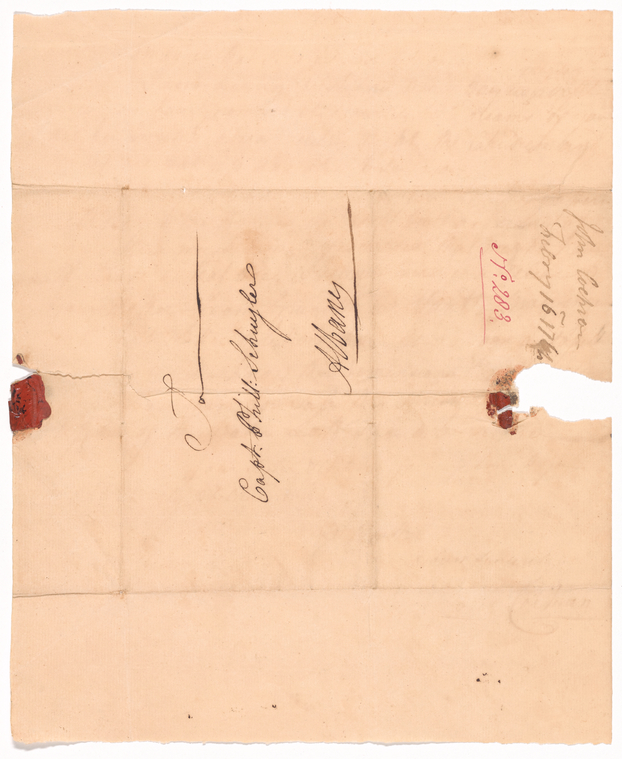 To
Capt. Phill: Schuyler
Albany
No. 283.
John Cochran
Febry 16 17